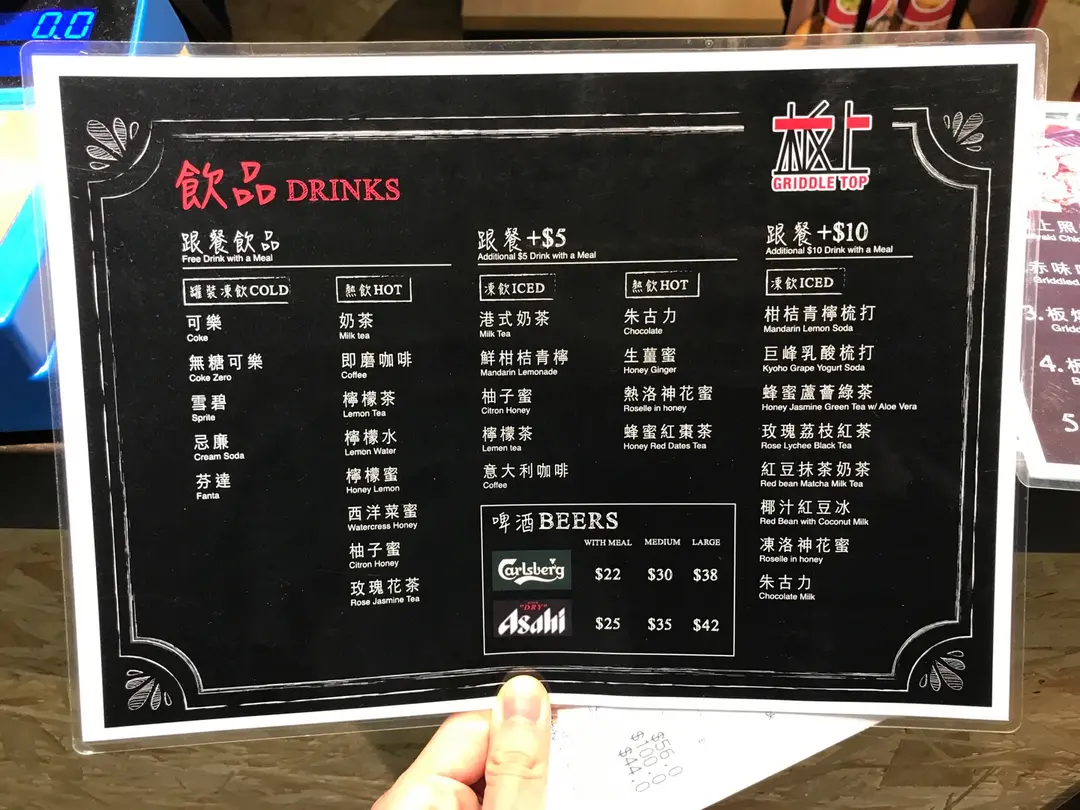 0.0
極上
GRIDDLE TOP
飲品 DRINKS
跟餐飲品
Free Drink with a Meal
罐裝凍飲 COLD
可樂
Coke
無糖可樂
Coke Zero
雪碧
Sprite
忌廉
Cream Soda
芬達
Fanta
熱飲 HOT
奶茶
Milk tea
即磨咖啡
Coffee
檸檬茶
Lemon Tea
檸檬水
Lemon Water
檸檬蜜
Honey Lemon
西洋菜蜜
Watercress Honey
柚子蜜
Citron Honey
玫瑰花茶
Rose Jasmine Tea
跟餐 +$5
Additional $5 Drink with a Meal
凍飲 ICED
港式奶茶
Milk Tea
鮮柑桔青檸
Mandarin Lemonade
柚子蜜
Citron Honey
檸檬茶
Lemen tea
意大利咖啡
Coffee
熱飲 HOT
朱古力
Chocolate
生薑蜜
Honey Ginger
熱洛神花蜜
Roselle in honey
蜂蜜紅棗茶
Honey Red Dates Tea
啤酒 BEERS
WITH MEAL MEDIUM LARGE
Carlsberg $22 $30 $38
"DRY"
Asahi $25 $35 $42
跟餐 +$10
Additional $10 Drink with a Meal
凍飲 ICED
柑桔青檸梳打
Mandarin Lemon Soda
巨峰乳酸梳打
Kyoho Grape Yogurt Soda
蜂蜜蘆薈綠茶
Honey Jasmine Green Tea w/ Aloe Vera
玫瑰荔枝紅茶
Rose Lychee Black Tea
紅豆抹茶奶茶
Red bean Matcha Milk Tea
椰汁紅豆冰
Red Bean with Coconut Milk
凍洛神花蜜
Roselle in honey
朱古力
Chocolate Milk
上照
味
3.板
4.板
5
$56.0
$100.0
$44.0